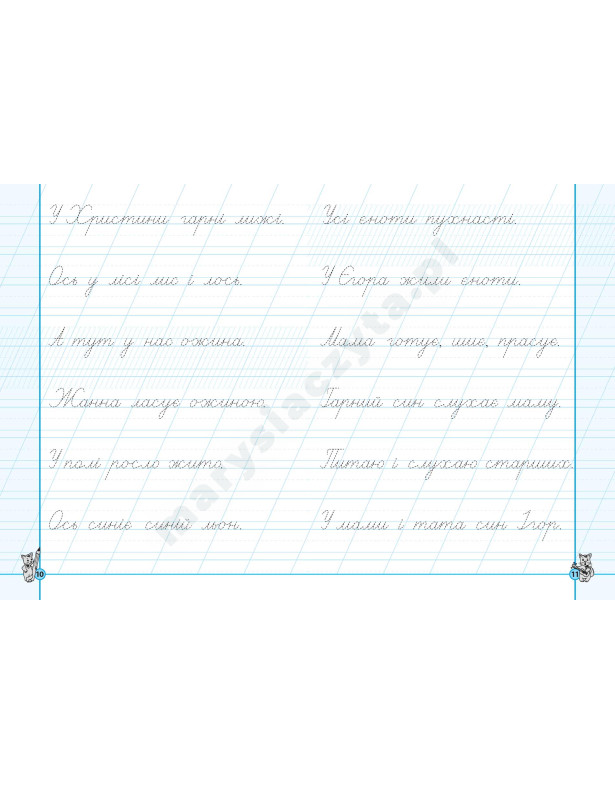 У Христини гарні лижі.
Ось у лісі лис і лось.
А тут у нас ожина.
Жанна ласує ожиною.
У полі росло жито.
Ось синіє синій льон.
10
Усі єноти пухнасті.
У Єгора жили єноти.
Мама готує, шиє, прасує.
Гарний син слухає маму.
Питаю і слухаю старших.
У мами і тата син Ігор.
11
marysiaczyta.pl